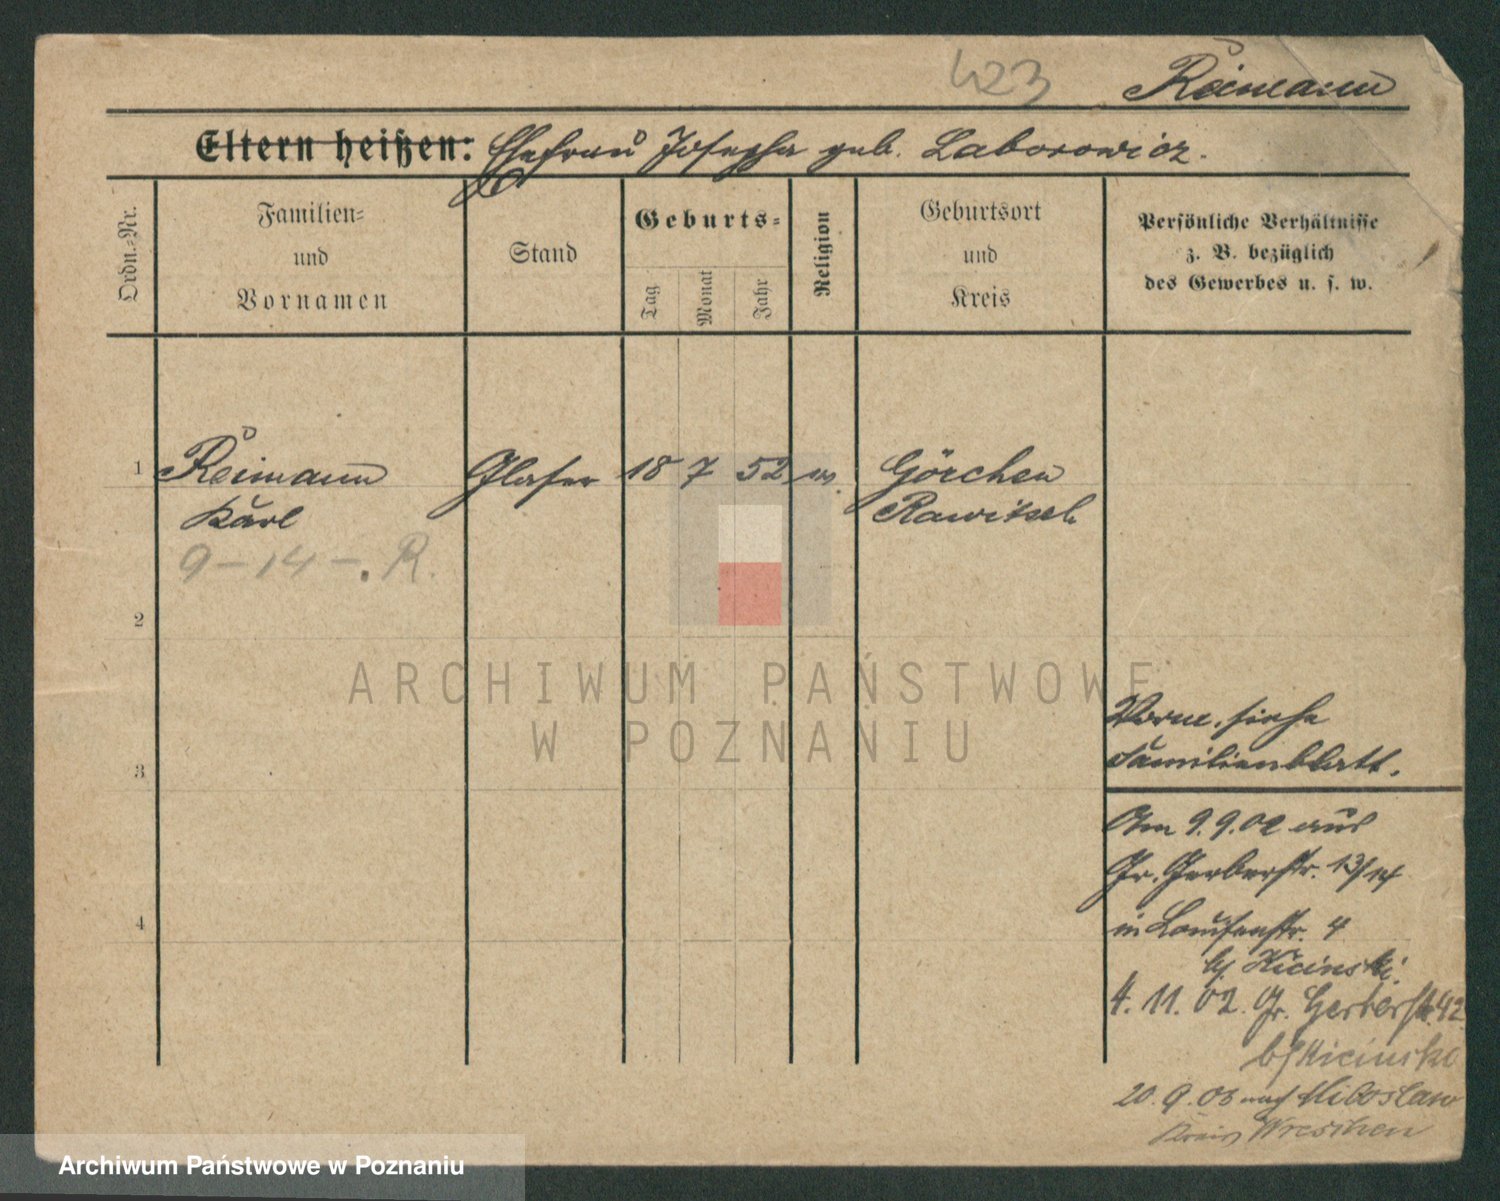 423 Reimann
Eltern heißen: Ehefrau Josepha geb. Laborowicz.
Ordn.-Nr.
Familien-
und
Vornamen
Stand
Geburts-
Tag
Monat
Jahr
Religion
Geburtsort
und
Kreis
Persönliche Verhältnisse
z. B. bezüglich
des Gewerbes u. s. w.
1 Reimann Glaser 18 7 52 Görchen
Karl Rawitsch
9-14-. R.
2
3
4
ARCHIWUM PAŃSTWOWE
W POZNANIU
Vorne siehe
Familienblatt.
Am 9.9.02 aus
Gr. Gerberstr. 13/14
in Louisenstr. 4
bf Kicinski
4. 11. 02. Gr. Gerberstr. 42
bf Kicinski
20. 9. 03 nach Miloslaw
Kreis Wreschen
Archiwum Państwowe w Poznaniu